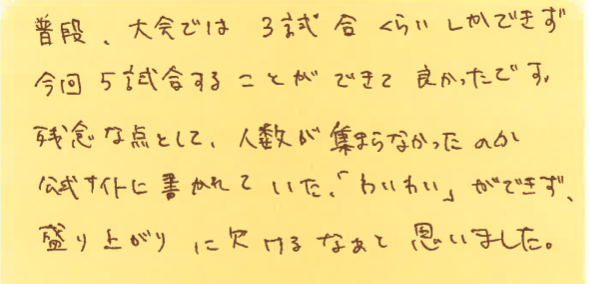 普段、大会では 3試合 くらいしかできず
今回 5試合することができて 良かったです。
残念な点として、人数が集まらなかったのか
公式サイトに書かれていた、「わいわい」ができず、
盛り上がりに欠けるなぁと思いました。